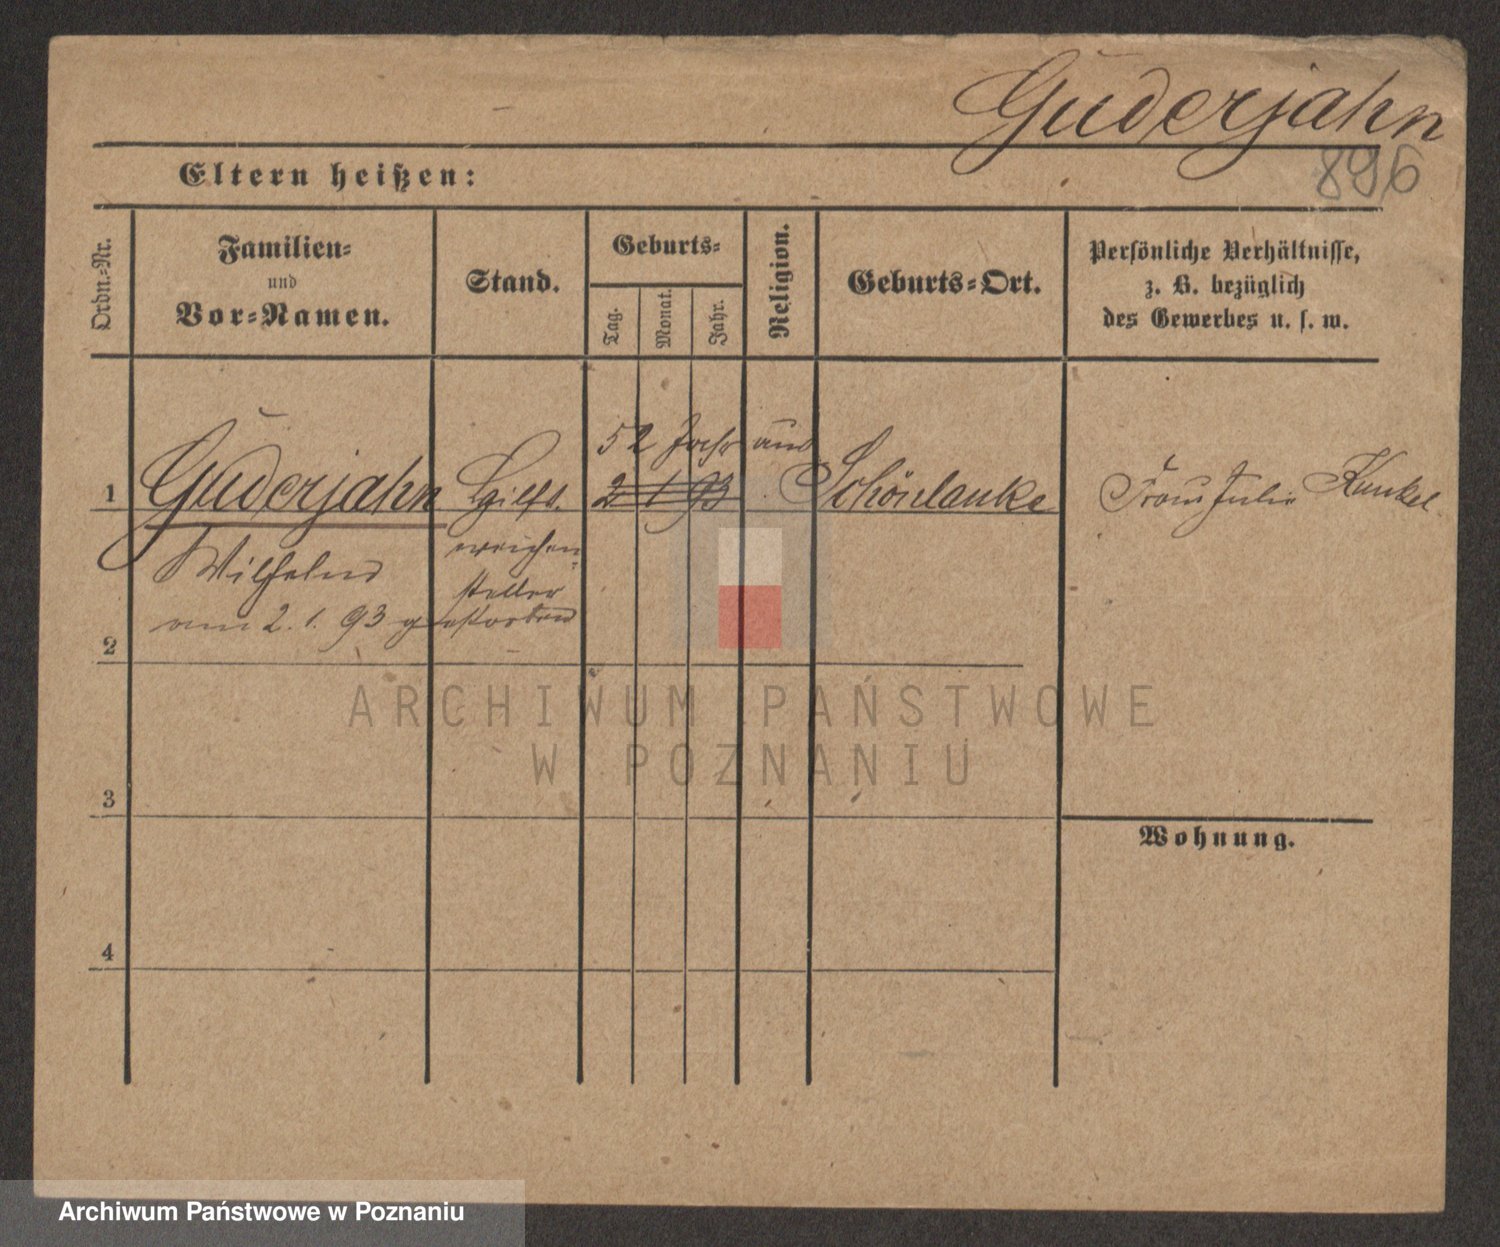 Guderjahn
896
Eltern heißen:
Ordn.-Nr.
Familien-
und
Vor-Namen.
Stand.
Geburts-
Tag.
Monat.
Jahr.
Religion.
Geburts-Ort.
Persönliche Verhältnisse,
z. B. bezüglich
des Gewerbes u. s. w.
52 Jahr aus
1 Guderjahn Hilfs- 2 1 93 Schönlanke Frau Julie Kunkel
Wilhelm weichen-
steller
am 2. 1. 93 gestorben
2
ARCHIWUM PAŃSTWOWE
W POZNANIU
3
Wohnung.
4
Archiwum Państwowe w Poznaniu